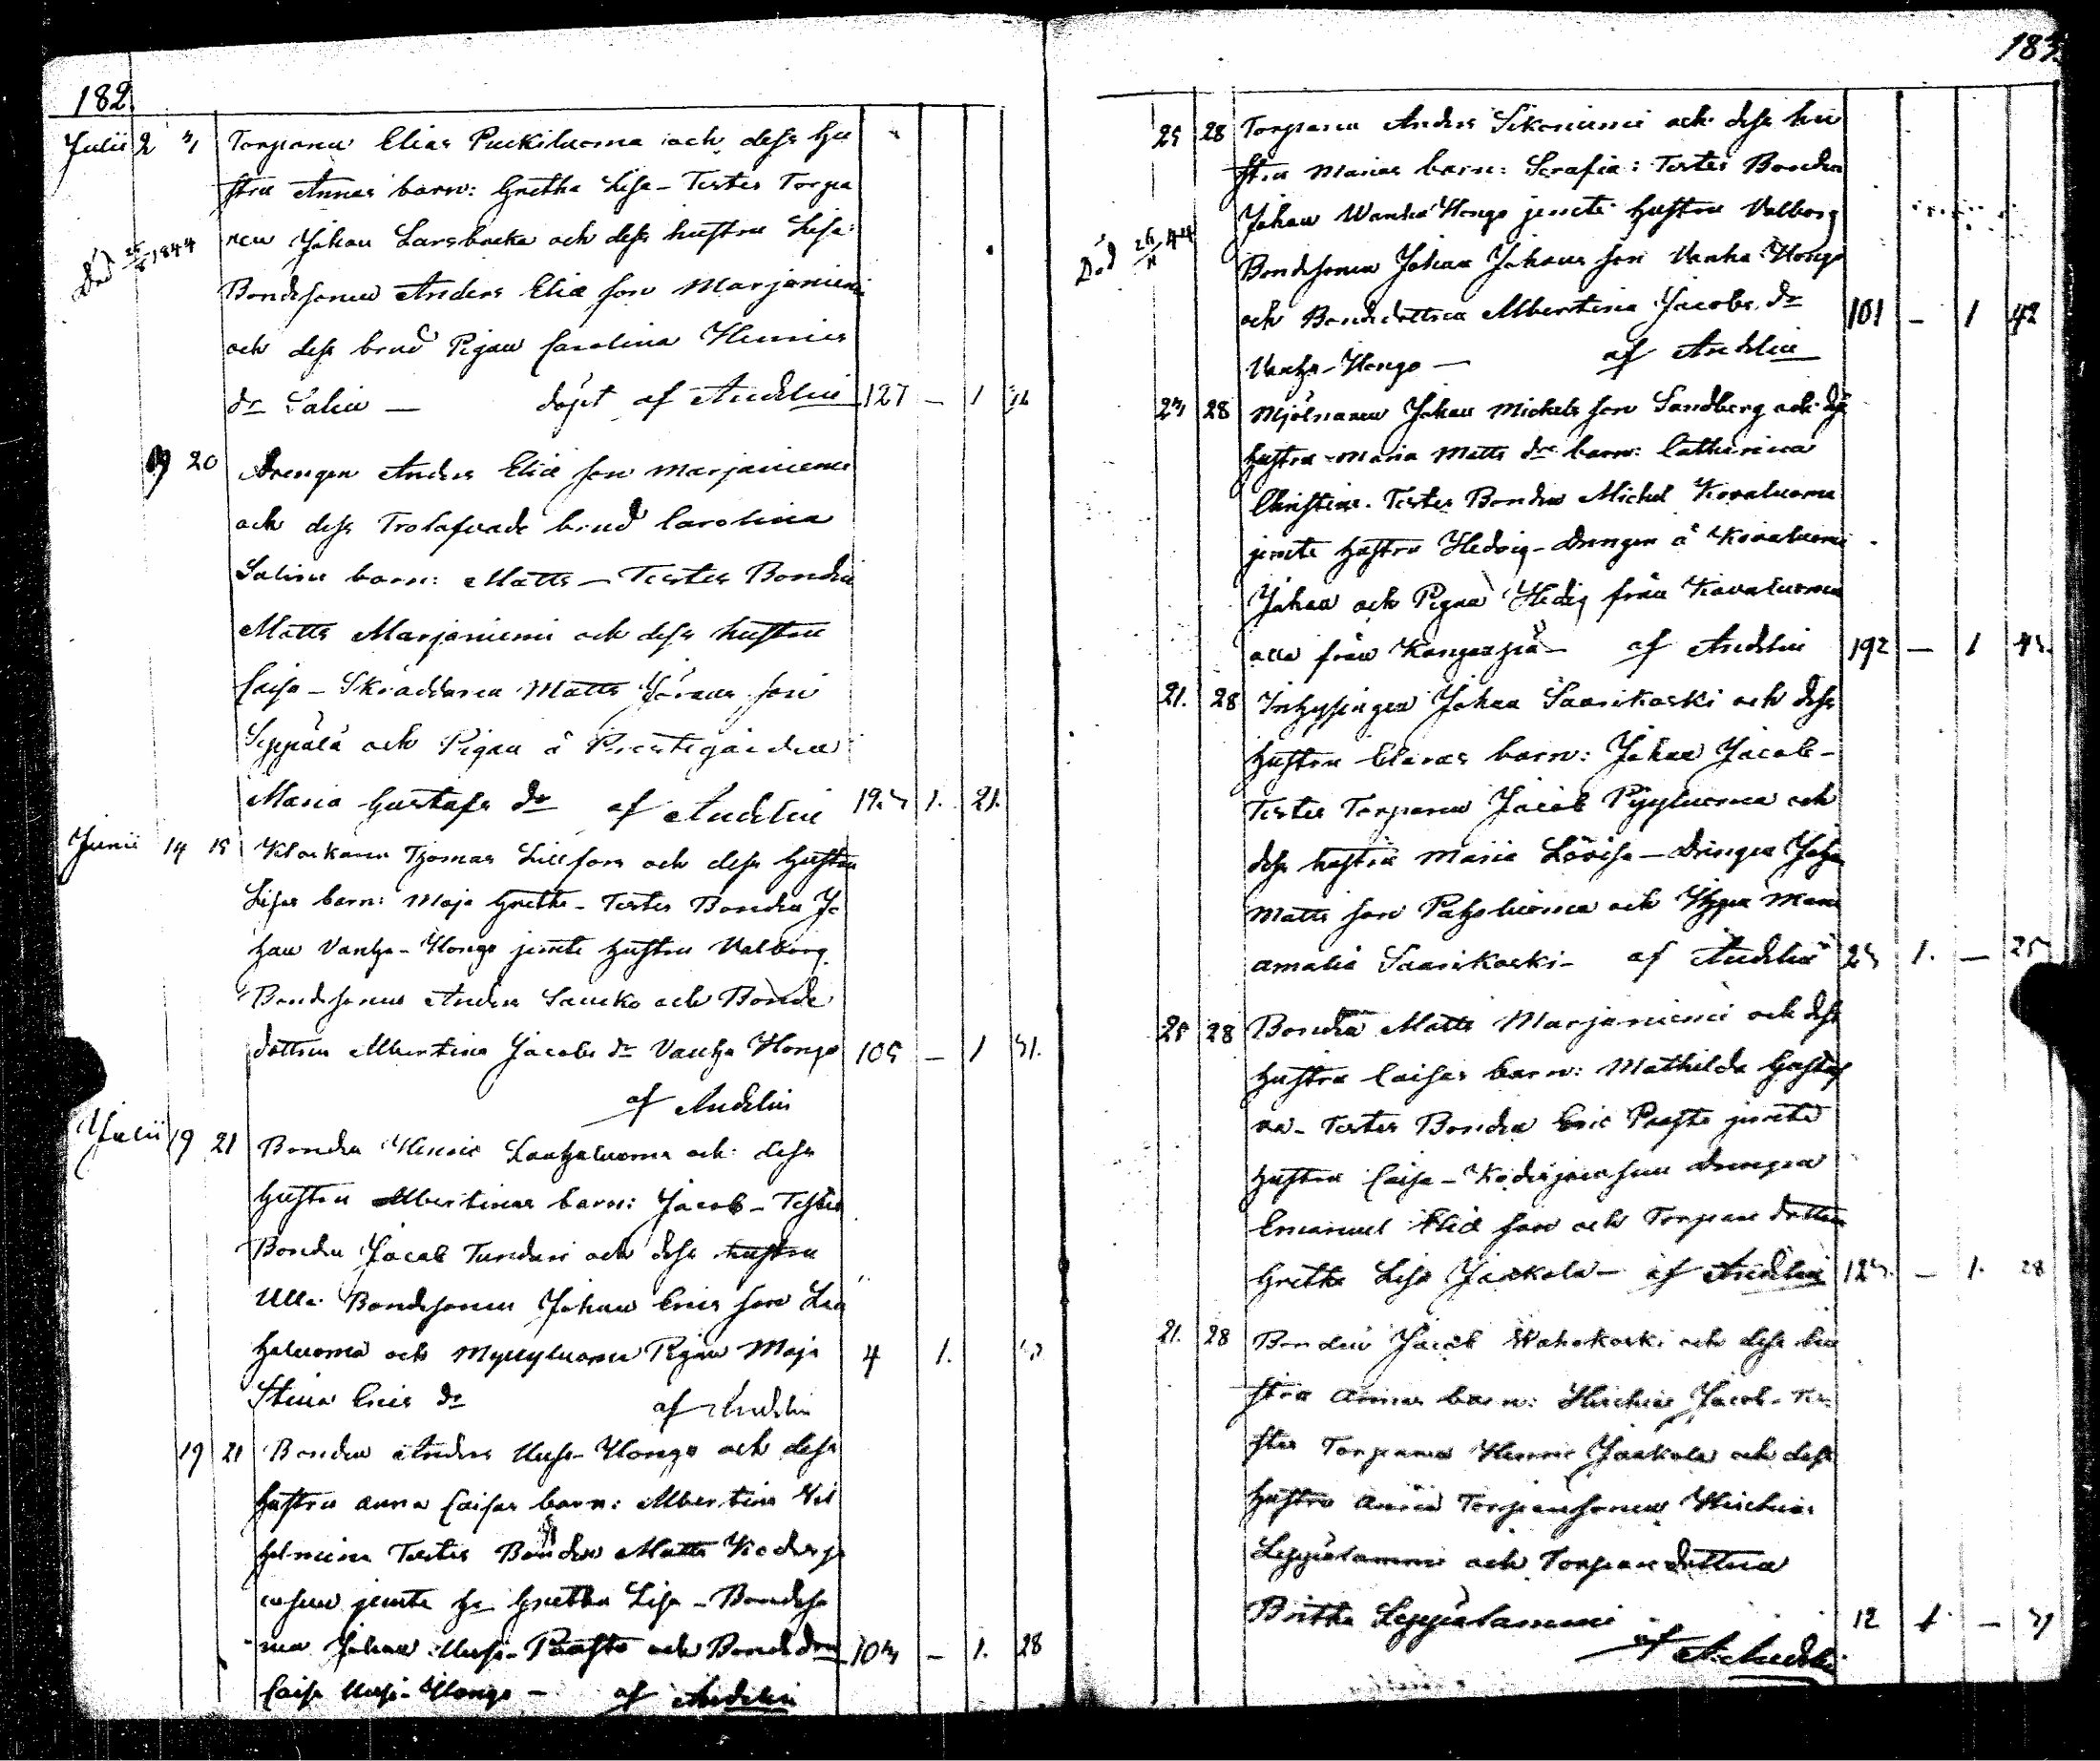 182.
Julii 2 3 Torparen Elias Puckiluoma och dess hu
stru Annas barn: Gretha Lisa - Testes Torpa
ren Johan Larsbacka och dess hustru Lisa:
Död 1844
Bondesonen Anders Eliæ son Marjaniemi
och dess brud Pigan Carolina Henrics
dr Salin — döpt af Andelin 127 — 1
19 20 Drengen Anders Eliæ son Marjaniemi
och dess Trolofvade brud Carolina
Salins barn: Matts — Testes Bonden
Matts Marjaniemi och dess hustru
Caisa - Skräddaren Matts Jörans son
Seppälä och Pigan å Prestegården
Maria Gustafs dr af Andelin 193 1. 21.
Junii 14 15 Klockaren Thomas Lillfors och dess hustru
Lisas barn: Maja Gretha - Testes Bonden Jo
han Vanha-Hongo jemte hustru Valborg
Bondesonen Anders Saucko och Bonde
dottren Albertina Jacobs dr Vanha Hongo 105 — 1 31.
af Andelin
Julii 19 21 Bonden Henric Lauhaluoma och dess
hustru Albertinas barn: Jacob - Testes
Bonden Jacob Tunduri och dess hustru
Ulla Bondesonen Johan Erics son Lau
haluoma och Myllyluoma Pigan Maja
4 1.
Stina Erics dr af Andelin
19 21 Bonden Anders Uusi-Hongo och dess
hustru Anna Caisas barn: Albertina Vil
helmina Testes Bonden Matts Koderja
jemte h. Gretha Lisa - Bondeso
nen Johan Uusi-Paasto och Bondedrn 103 — 1. 28
Caisa Uusi-Hongo — af Andelin
183.
25 28 Torparen Anders Sikoniemi och dess hu
stru Marias barn: Serafia: Testes Bonden
Johan Wanha Hongo jemte hustru Valborg
Död 44
Bondesonen Johan Johans son Vanha-Hongo
och Bondedottren Albertina Jacobs dr 101 — 1 42
Vanha-Hongo — af Andelin
23 28 Mjölnaren Johan Michels son Sandberg och dess
hustru Maria Matts drs barn: Catharina
Christina. Testes Bonden Michel Kovaluoma
jemte hustru Hedvig - drengen å Kovaluoma
Johan och Pigan Hedvig från Kovaluoma
alla från Kangaspä — af Andelin 192 — 1 43.
21. 28 Inhysingen Johan Saarikoski och dess
hustru Claras barn: Johan Jacob -
Testes Torparen Jacob Pyyluoma och
dess hustru Maria Lovisa — Drengen Johan
Matts son Pahaluoma och Pigan Maria
Amalia Saarikoski - af Andelin 23 1. — 25
25 28 Bonden Matts Marjaniemi och dess
hustru Caisas barn: Mathilda Gustaf
va - Testes Bonden Eric Paasto jemte
hustru Caisa - Drengen
Emanuel Eliæ son och Torpare dottren
Gretha Lisa Jaakola — af Andelin 123. — 1. 28
21. 28 Bonden Jacob Wahakoski och dess hu
stru Annas barn: Jacob - Te
stes Torparen Henric Jaakola och dess
hustru Anna Torparesonen
Leppälammi och Torpare dottren
Britha Leppälammi 12 1 —
af A. Andelin